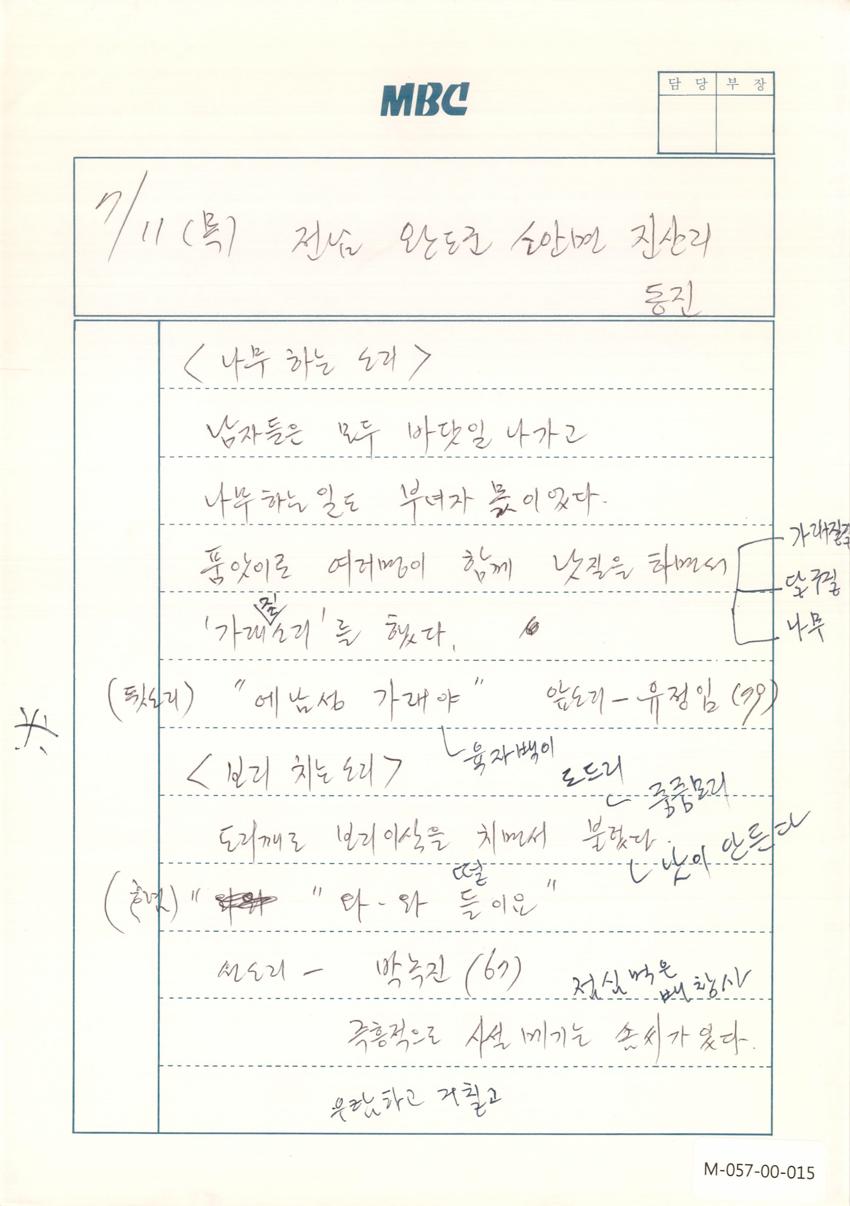 MBC
담 당 부 장
7/11 (목) 전남 완도군 소안면 진산리
동진
< 나무 하는 소리 >
남자들은 모두 바닷일 나가고
나무하는 일도 부녀자 몫이었다.
품앗이로 여러명이 함께 낫질을 하면서
가래질
달구질
나무
'가래질소리'를 했다.
(뒷소리) "에남성 가래야" 앞소리 - 유정임 (79)
육자백이
< 보리 치는 소리 >
도드리
중중모리
도리깨로 보리이삭을 치면서 불렀다.
낫이 안든다
(후렴) " " 와-와 들이요"
떨
선소리 - 박녹진 (67)
점심먹은
배 창사
즉흥적으로 사설 메기는 솜씨가 있다.
우람하고 거칠고
M-057-00-015